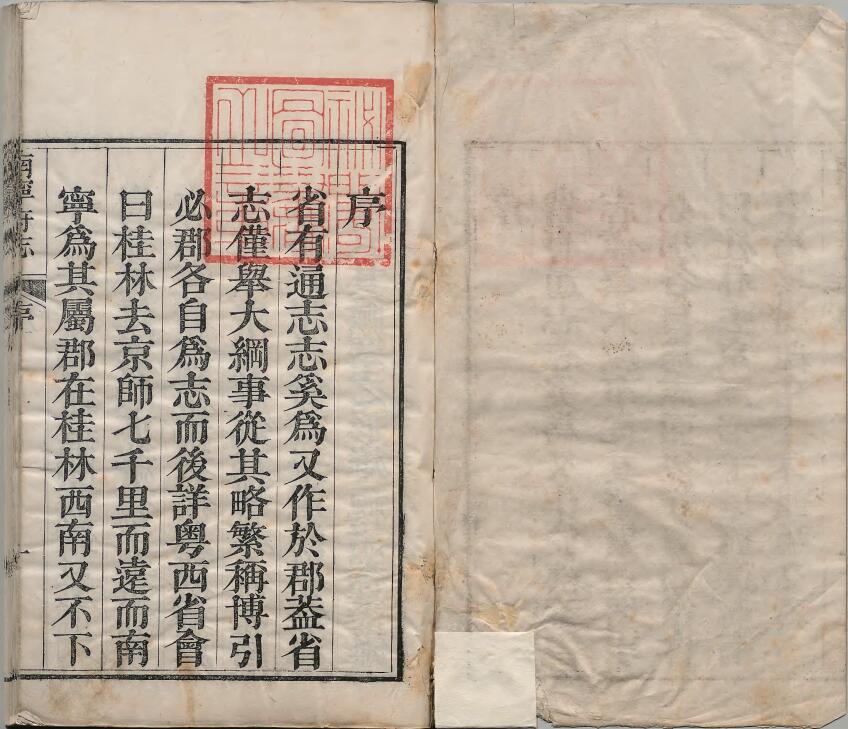 序
省有通志志奚爲又作於郡葢省
志僅舉大綱事從其略繁稱博引
必郡各自爲志而後詳粤西省會
曰桂林去京師七千里而遠而南
寧爲其屬郡在桂林西南又不下
南寧府志
序
一